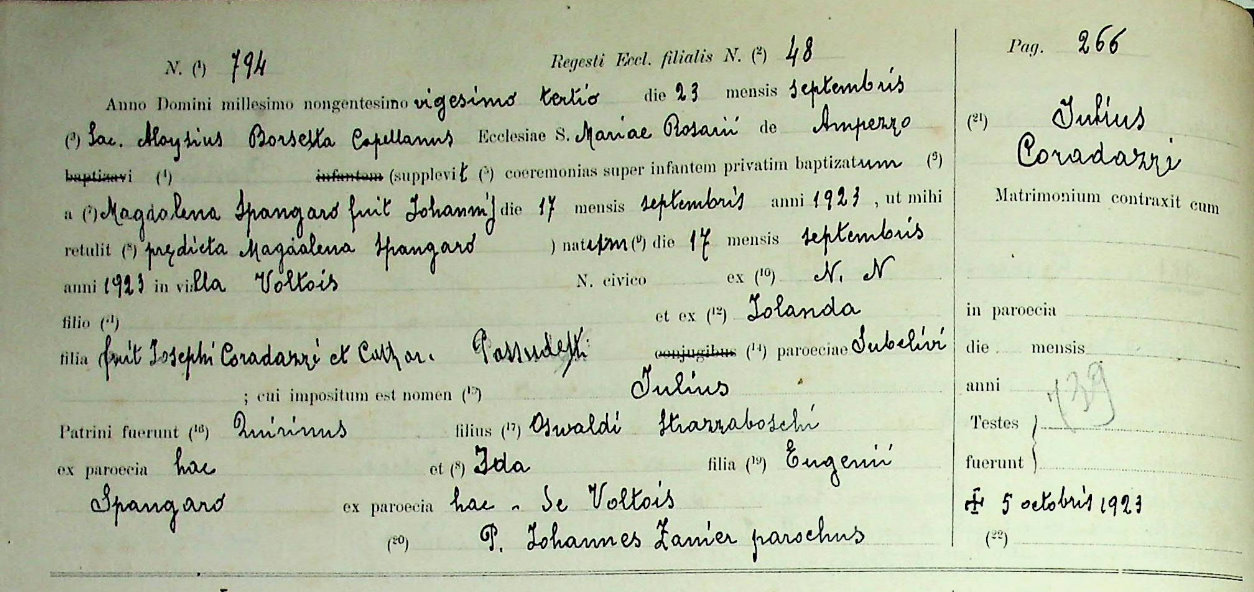 N. (1) 794 Regesti Eccl. filialis N. (2) 48
Anno Domini millesimo nongentesimo vigesimo tertio die 23 mensis septembris
(3) Sac. Aloysius Borsetta Capellanus Ecclesiae S. Mariae Rosarii de Ampezzo
baptizavi (4) infantem (supplevit (5) coeremonias super infantem privatim baptizatum (6)
a (7) Magdalena Spangaro fuit Johannis) die 17 mensis septembris anni 1923, ut mihi
retulit (8) prędicta Magdalena Spangaro ) natum (9) die 17 mensis septembris
anni 1923 in villa Voltois N. civico ex (10) N. N
filio (11) et ex (12) Iolanda
filia fuit Iosephi Coradazzi et Cathar. conjugibus (14) paroeciae
; cui impositum est nomen (15) Iulius
Patrini fuerunt (16) Quirinus filius (17) Oswaldi Strazzaboschi
ex paroecia hac et (18) Ida filia (19) Eugenii
Spangaro ex paroecia hac - de Voltois
(20) P. Iohannes Zanier parochus
Pag. 266
(21) Iulius
Coradazzi
Matrimonium contraxit cum
in paroecia
die mensis
anni
739
Testes
fuerunt
✠ 5 octobris 1923
(22)